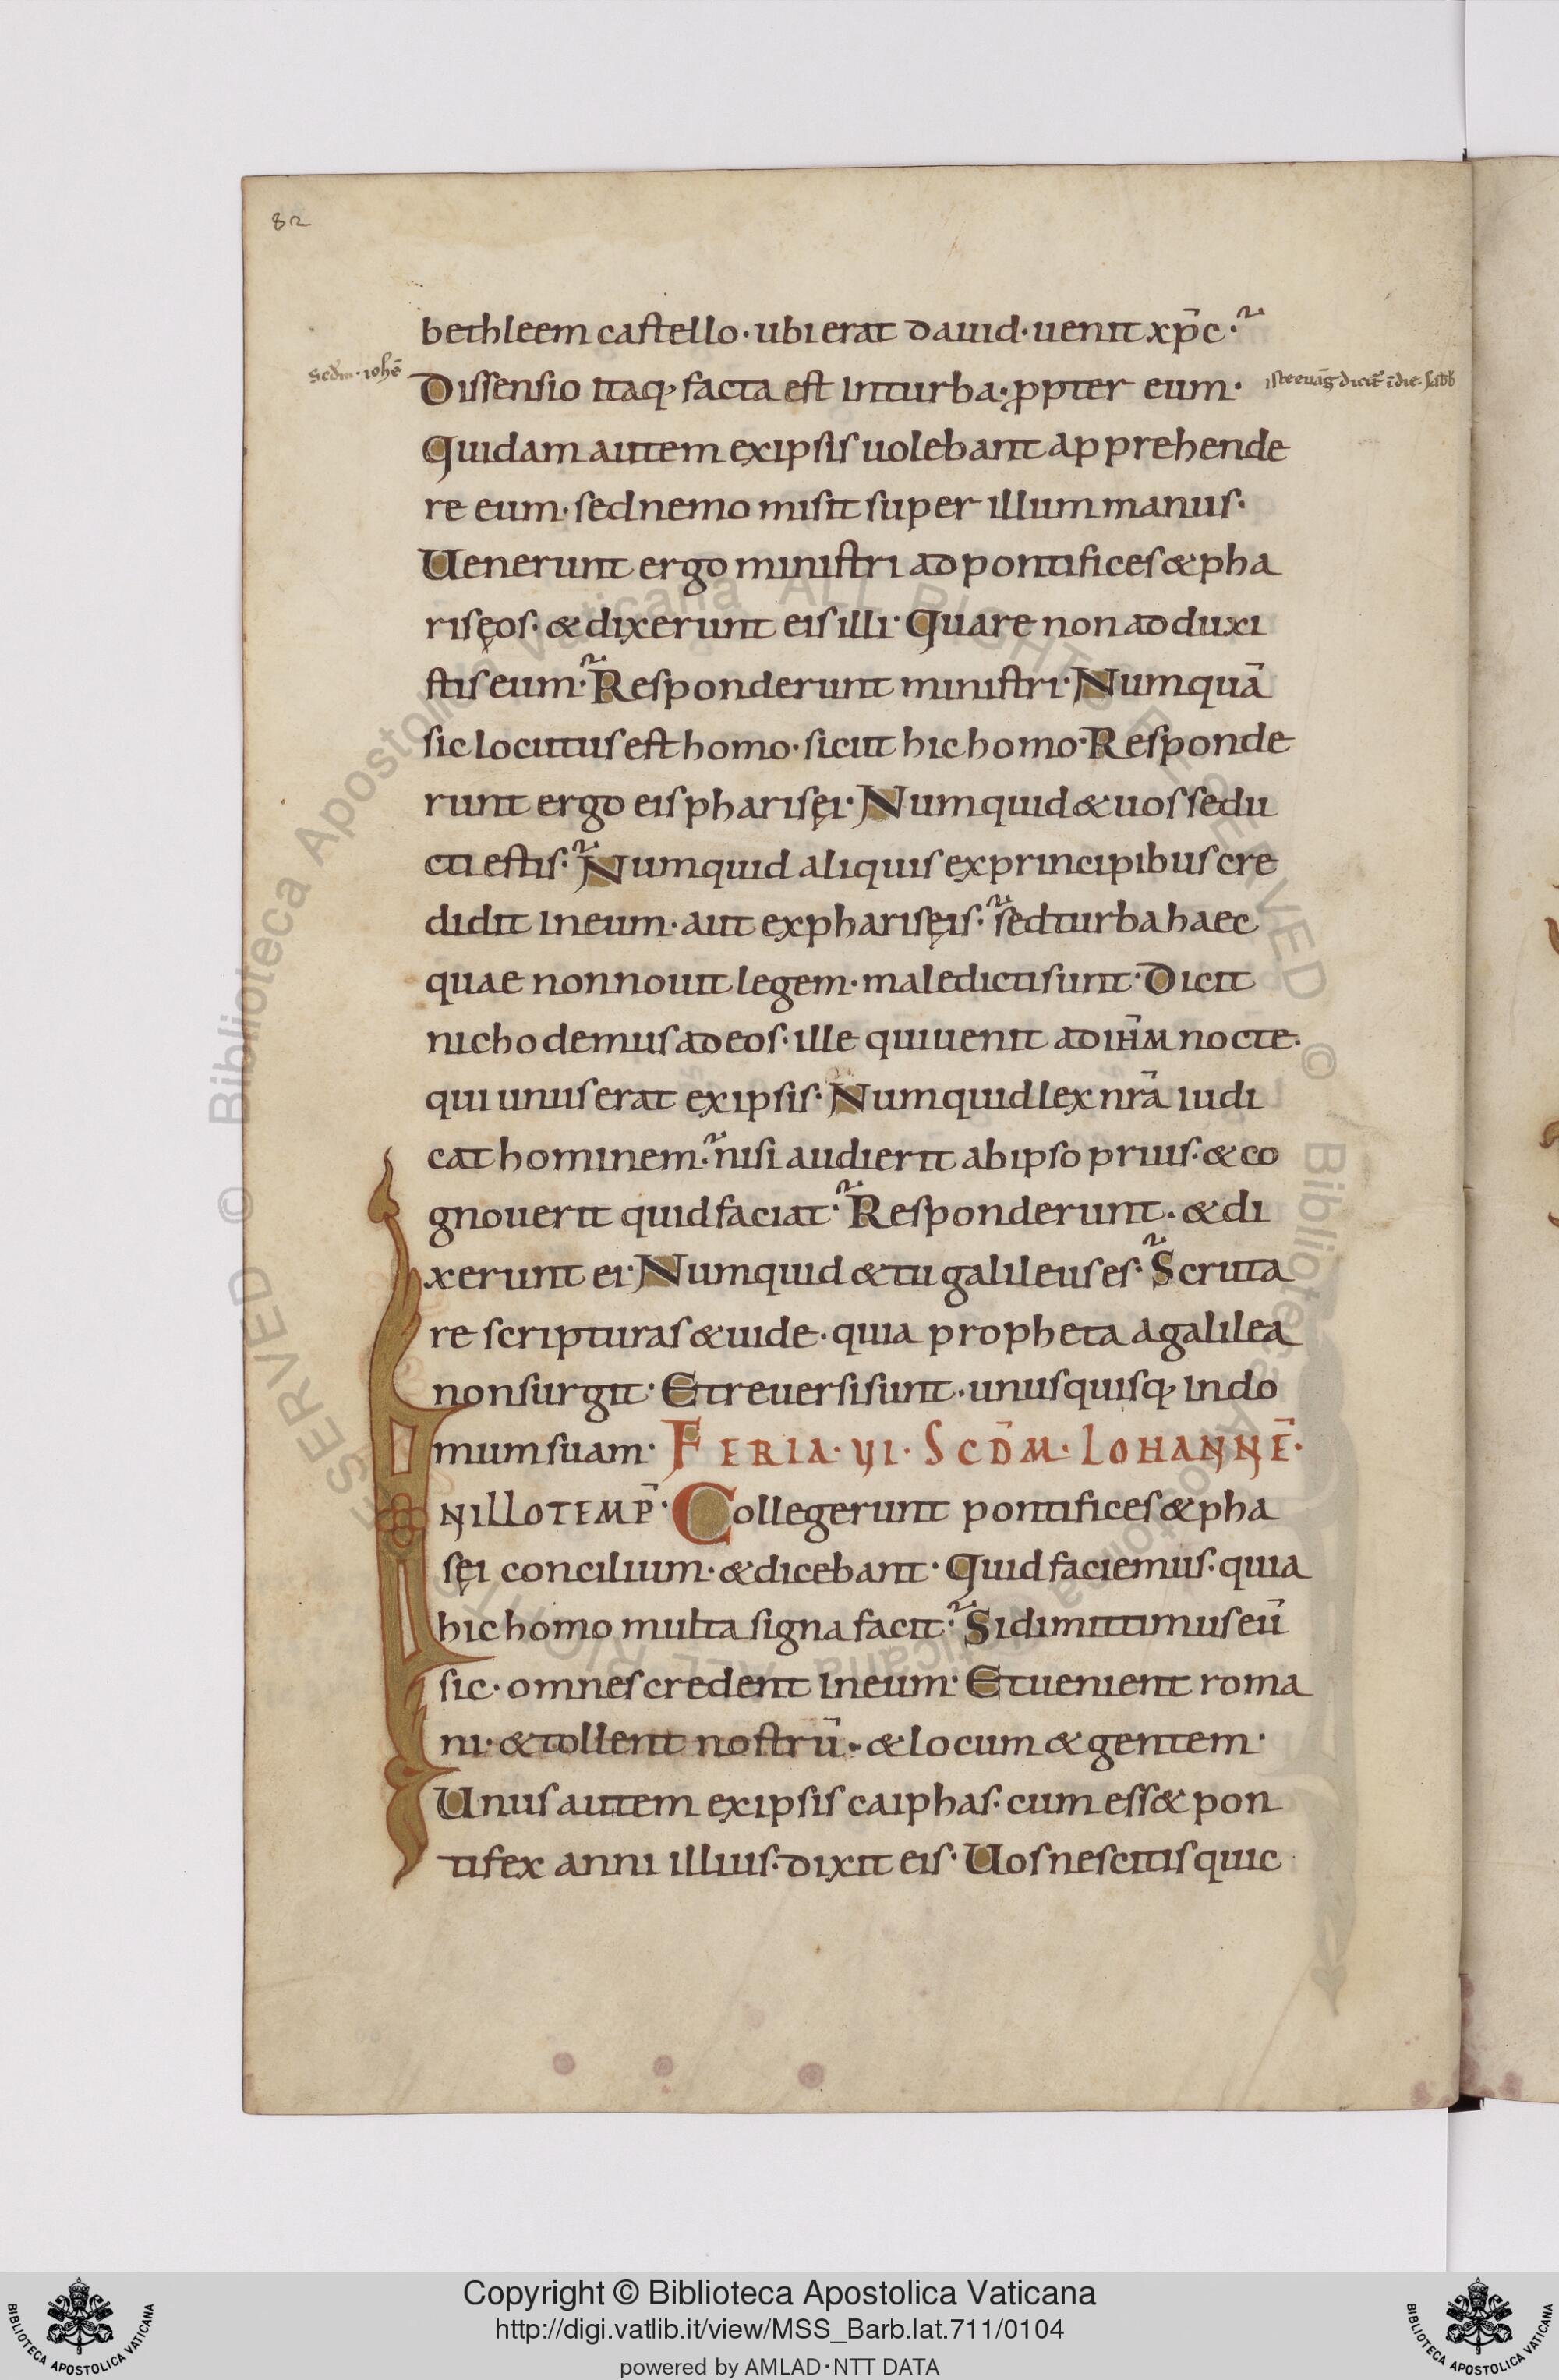 82
bethleem castello · ubi erat dauid · uenit xp̄c ·
Scdm · iohē
Dissensio itaq; facta est inturba · ꝓpter eum ·
iste euāg̅ dicit̅ ī die Sabb
Quidam autem exipsis uolebant apprehende
re eum · sed nemo misit super illum manus ·
Uenerunt ergo ministri ad pontifices & pha
risęos · & dixerunt eis illi · Quare non adduxi
stis eum · Responderunt ministri · Numquā
sic locutus est homo · sicut hic homo · Responde
runt ergo eis pharisęi · Numquid & uos sedu
cti estis · Numquid aliquis ex principibus cre
didit ineum · aut ex pharisęis · sed turba haec
quae non nouit legem · maledicti sunt · Dicit
nichodemus ad eos · ille qui uenit ad ih̄m nocte ·
qui unus erat ex ipsis · Numquid lex nr̄a iudi
cat hominem · nisi audierit ab ipso prius · & co
gnouerit quid faciat · Responderunt · & di
xerunt ei · Numquid & tu galileus es · Scruta
re scripturas & uide · quia propheta a galilea
non surgit · Et reuersi sunt · unusquisq; in do
mum suam · FERIA · VI · SCD̄M · IOHANNĒ ·
INILLOTEMP̄ · Collegerunt pontifices & pha
sęi concilium · & dicebant · Quid faciemus · quia
hic homo multa signa facit · Si dimittimus eū
sic · omnes credent ineum · Et uenient roma
ni · & tollent nostrū · & locum & gentem ·
Unus autem ex ipsis caiphas · cum ess& pon
tifex anni illius · dixit eis · Uos nescitis quic
Copyright © Biblioteca Apostolica Vaticana
http://digi.vatlib.it/view/MSS_Barb.lat.711/0104
powered by AMLAD·NTT DATA
BIBLIOTECA APOSTOLICA VATICANA
BIBLIOTECA APOSTOLICA VATICANA